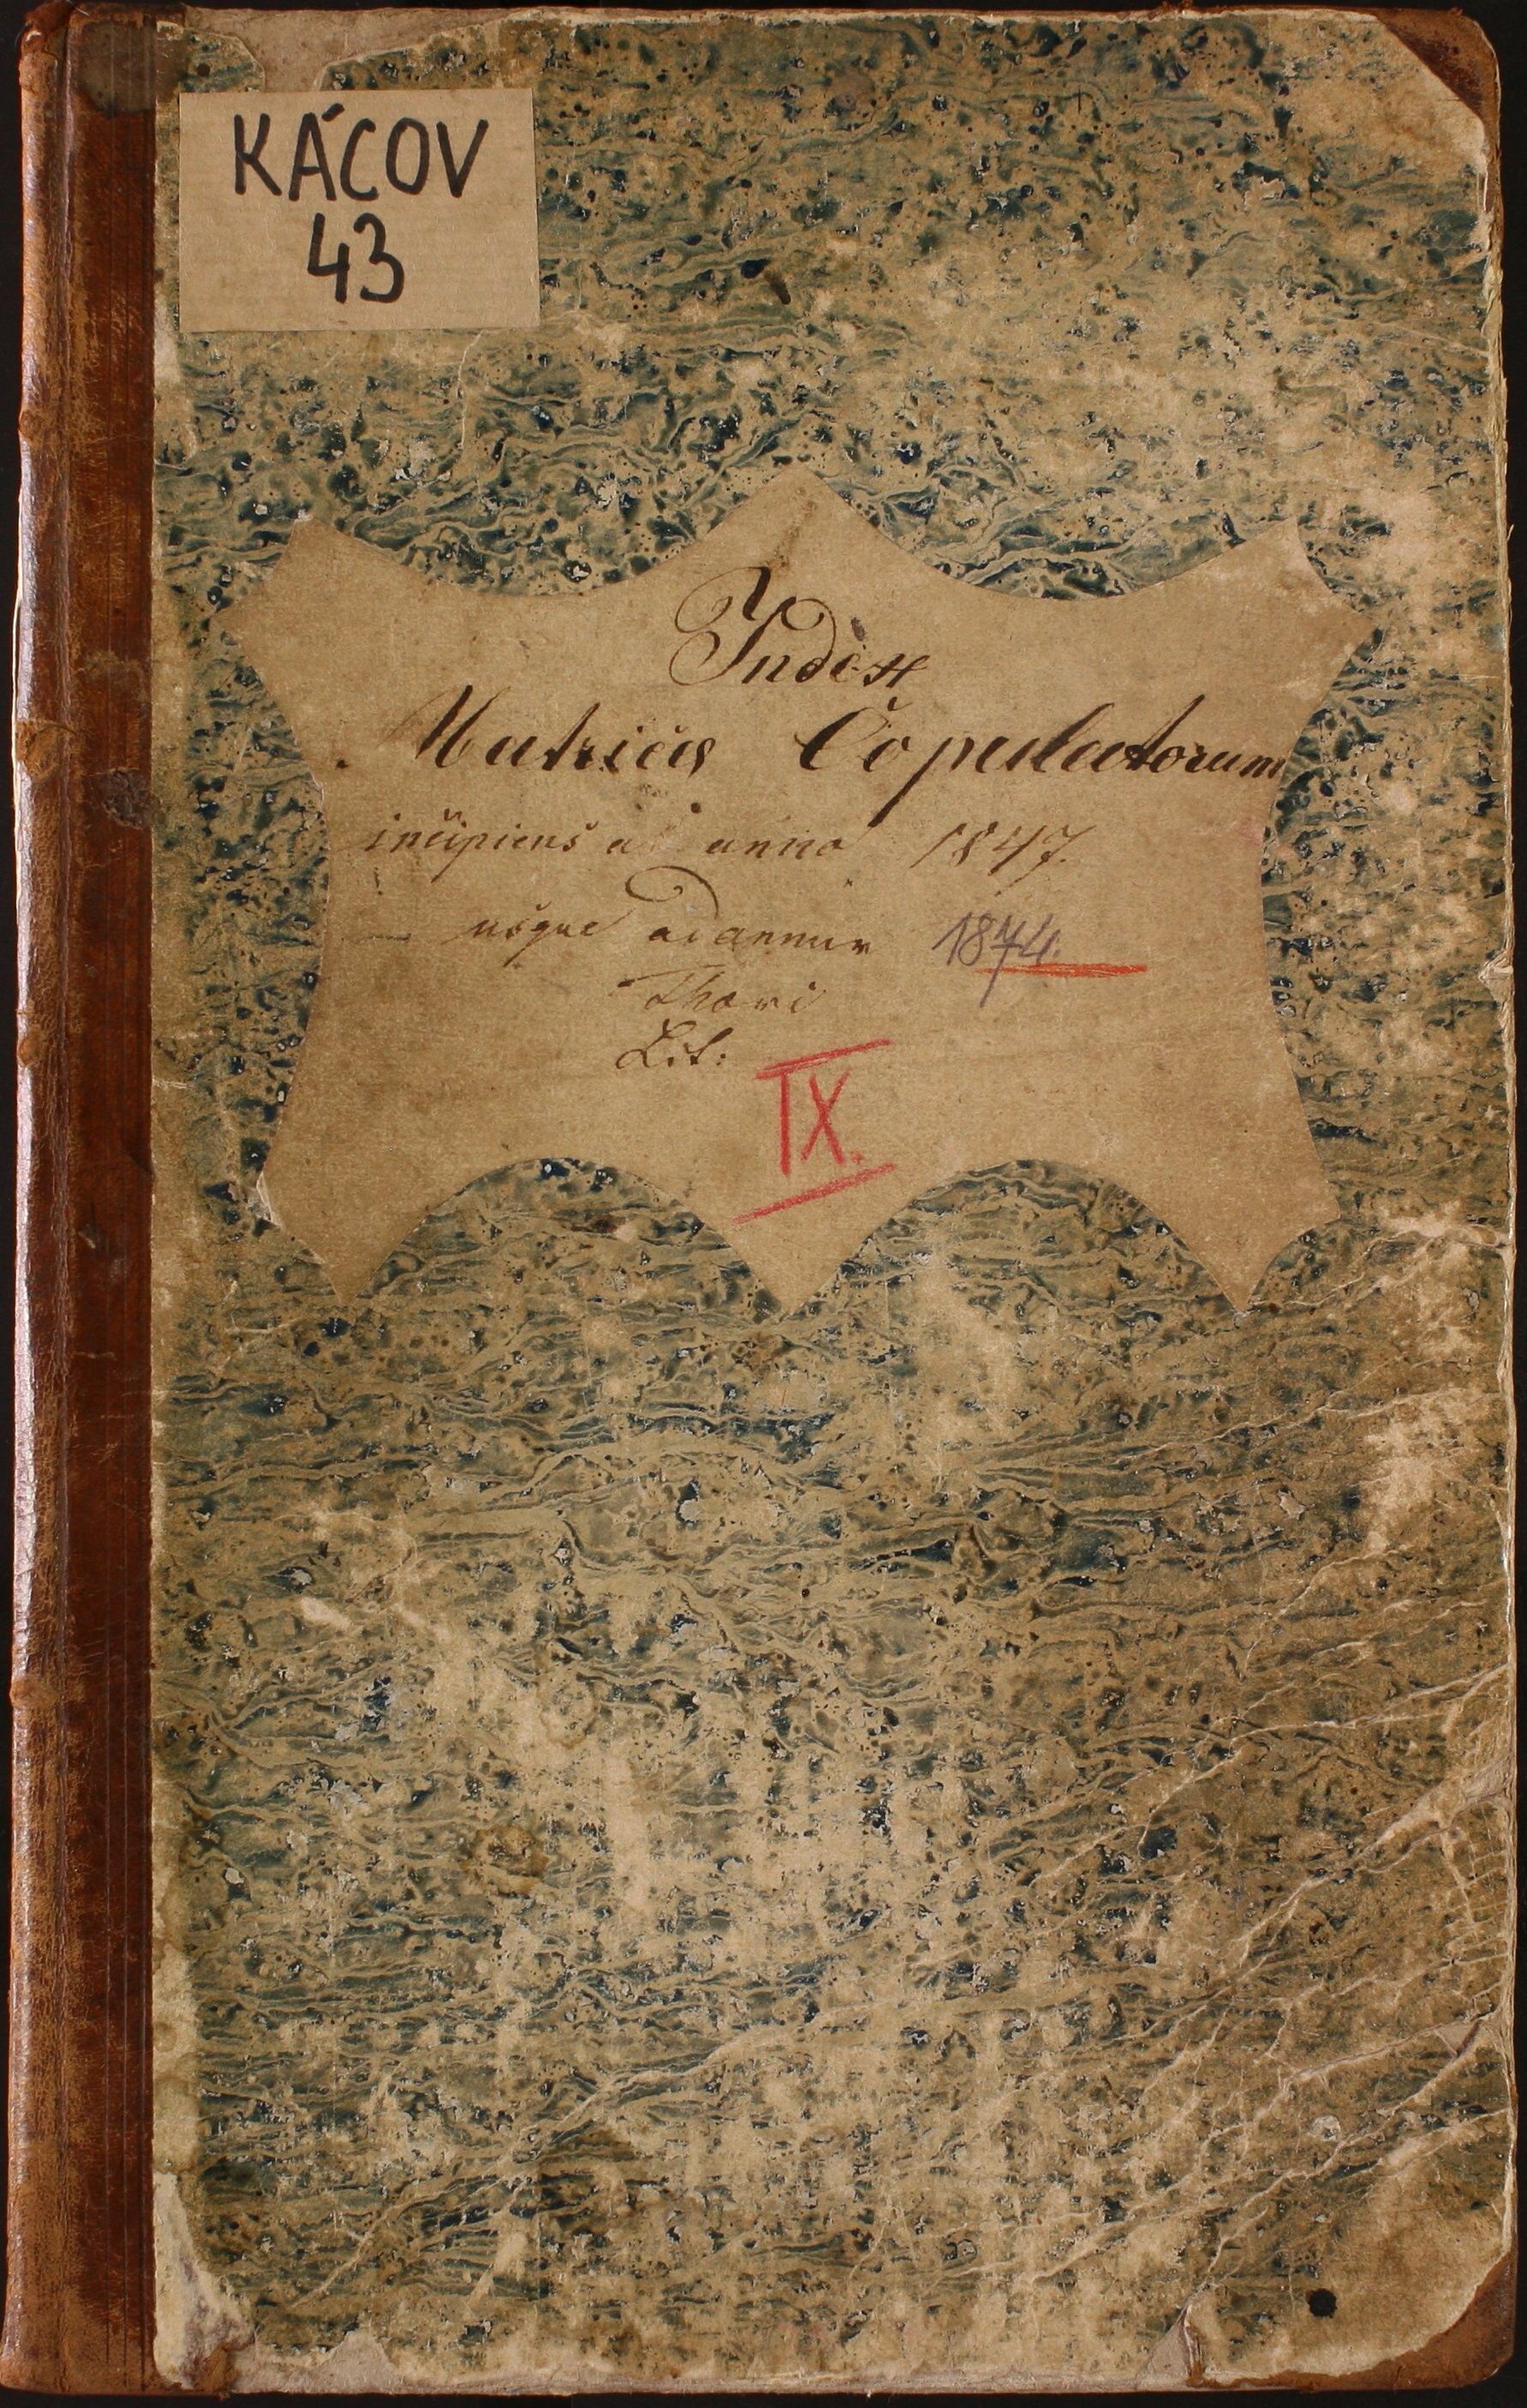 KÁCOV
43
Index
Matricæ Copulatorum
incipiens ab anno 1847.
usque ad annum 1874.
Thomi
Lit:
IX.